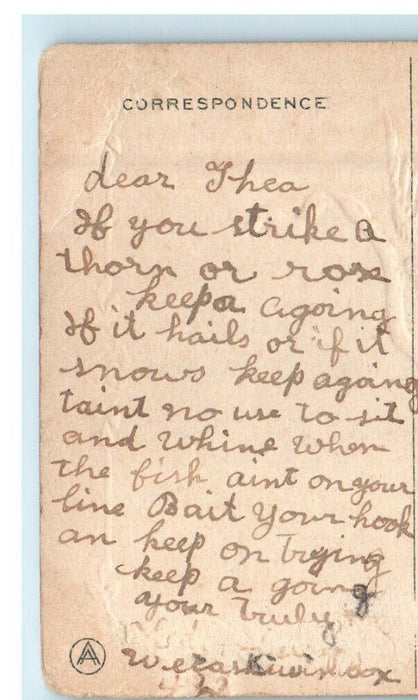 CORRESPONDENCE
dear Thea
If you strike a
thorn or rose
keep a agoing
If it hails or if it
snows keep agoing
taint no use to sit
and whine when
the fish aint on your
line Bait your hook
an keep on trying
keep a going
your truly
A Wetaskiwin box